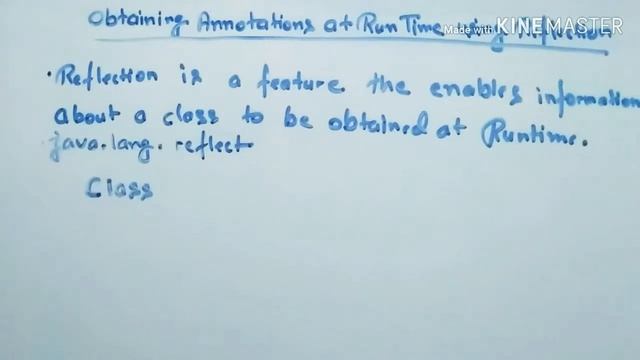 Obtaining Annotations at Run Time
Made with KINEMASTER
• Reflection is a feature the enables information
about a class to be obtained at Runtime.
java.lang.reflect
Class